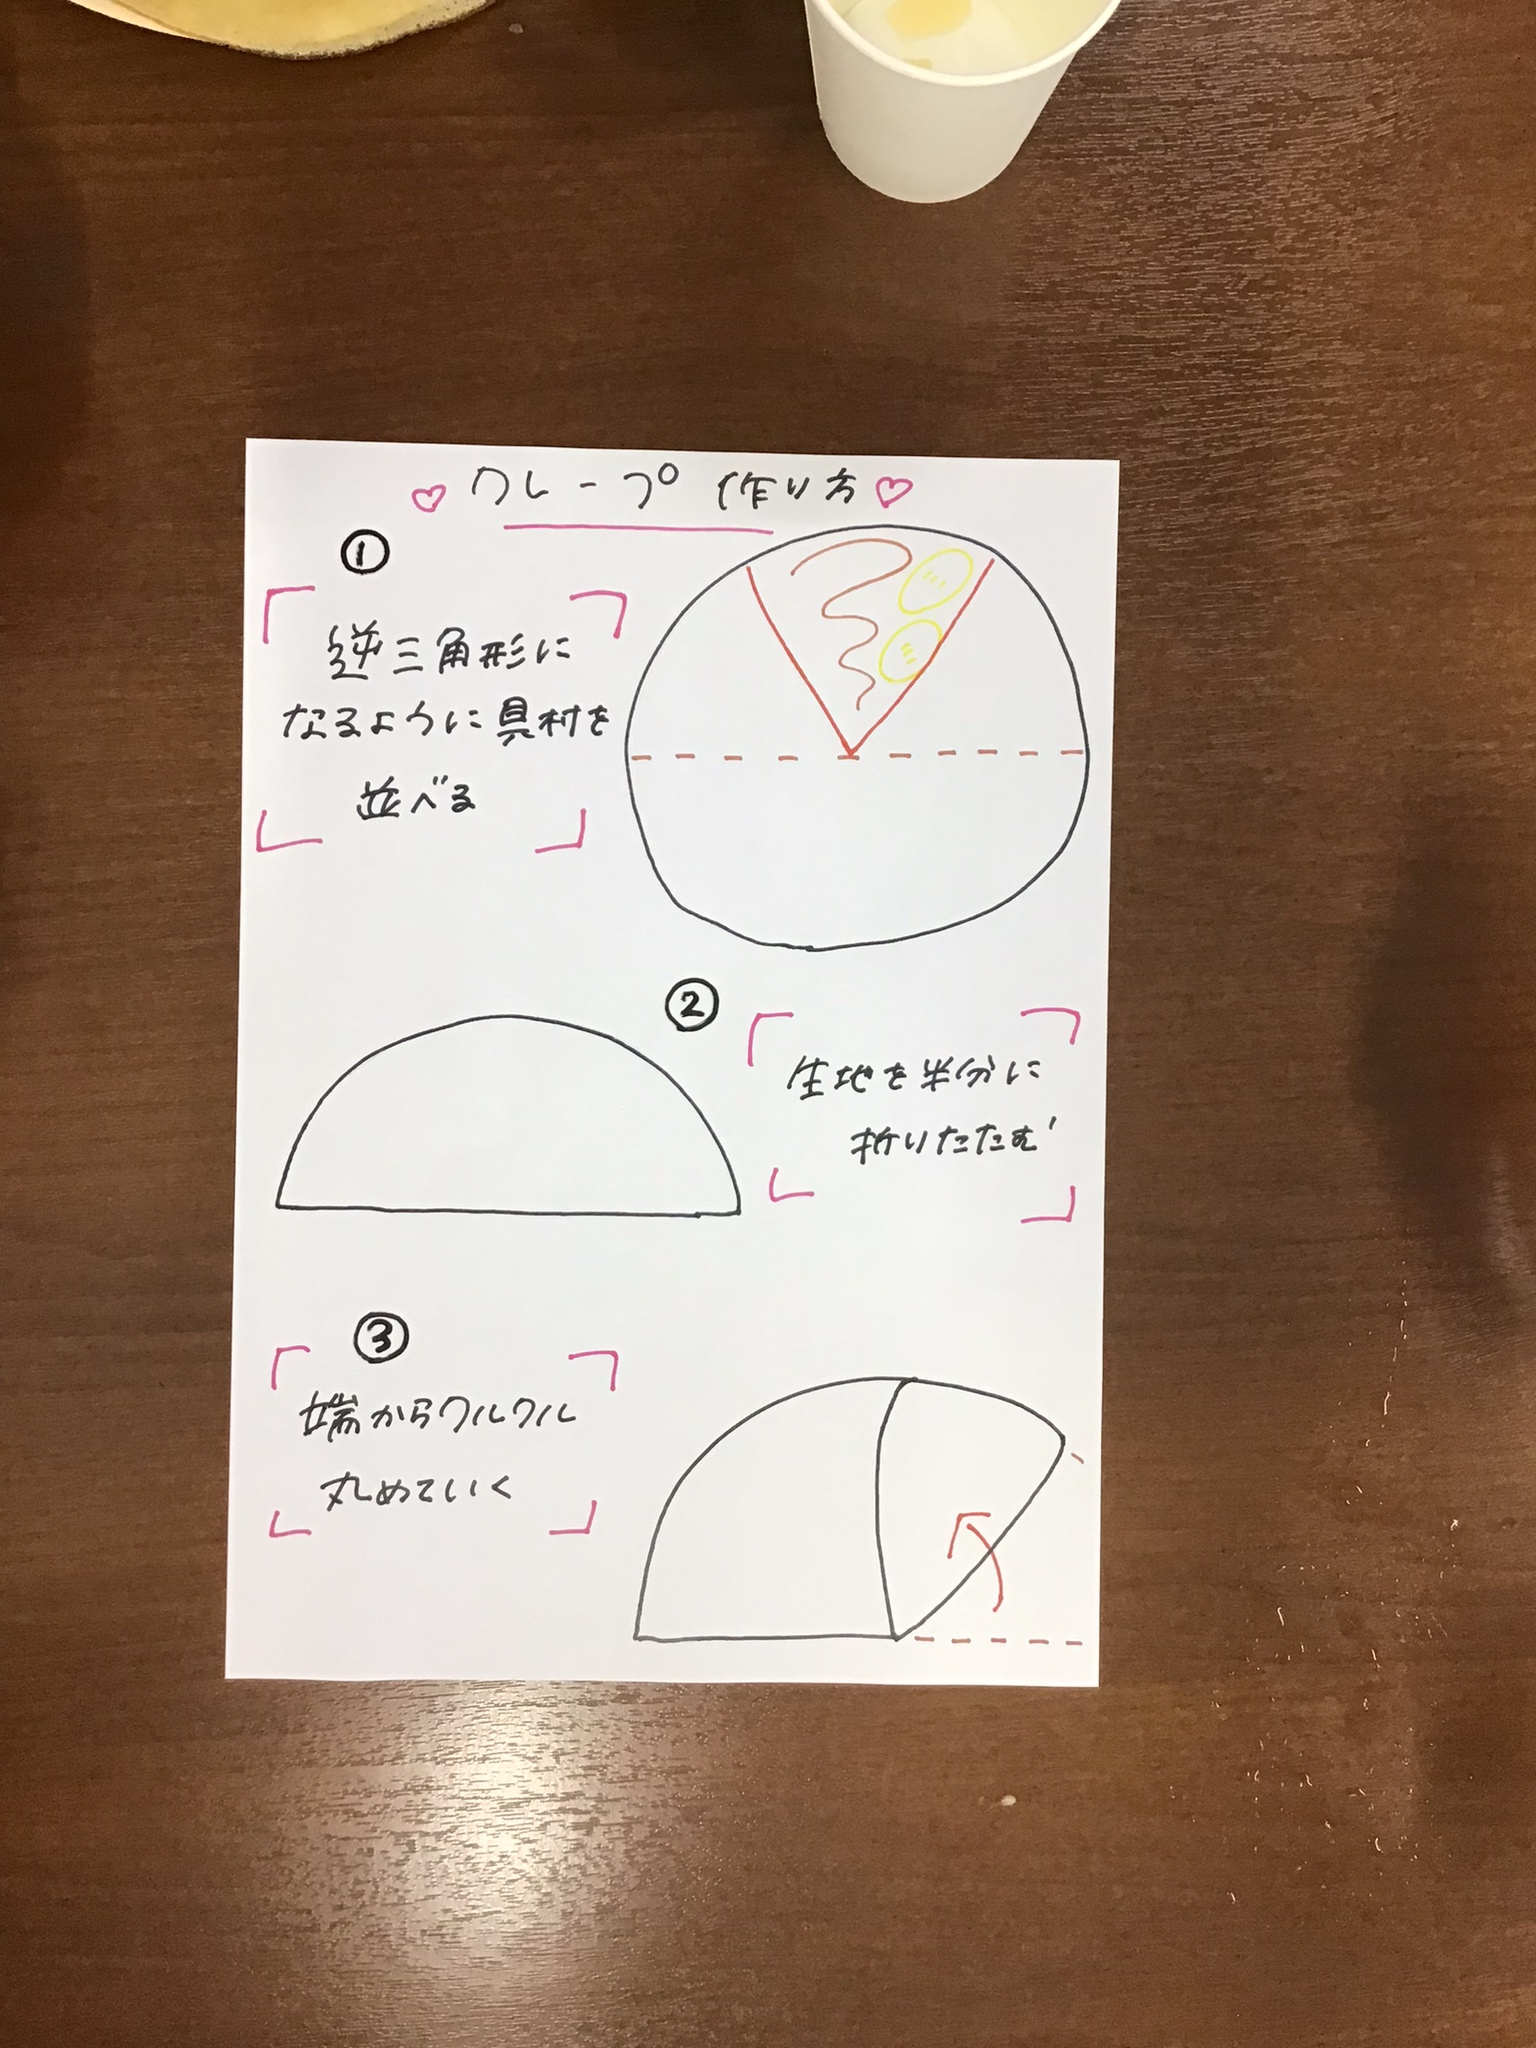 ♡クレープ 作り方♡
①
逆三角形に
なるように具材を
並べる
②
生地を半分に
折りたたむ
③
端からクルクル
丸めていく